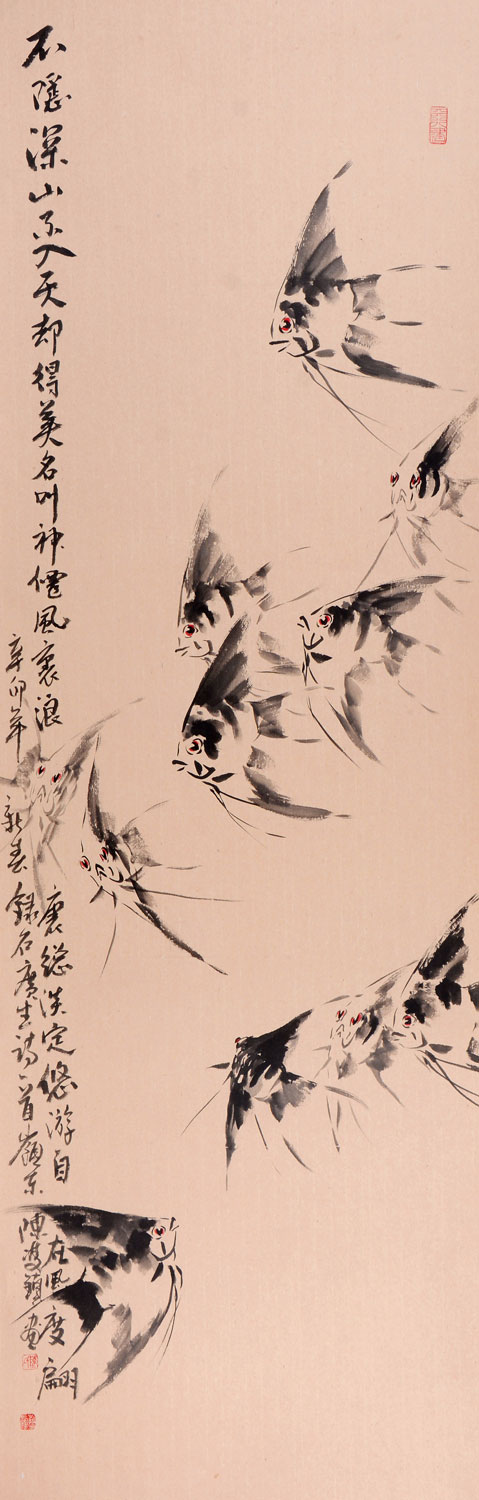 不隱深山不入天却得美名叫神僊風裏浪裏總淡定悠游自在風度翩
辛卯年新春錄石廣生詩一首嶺東陳畫